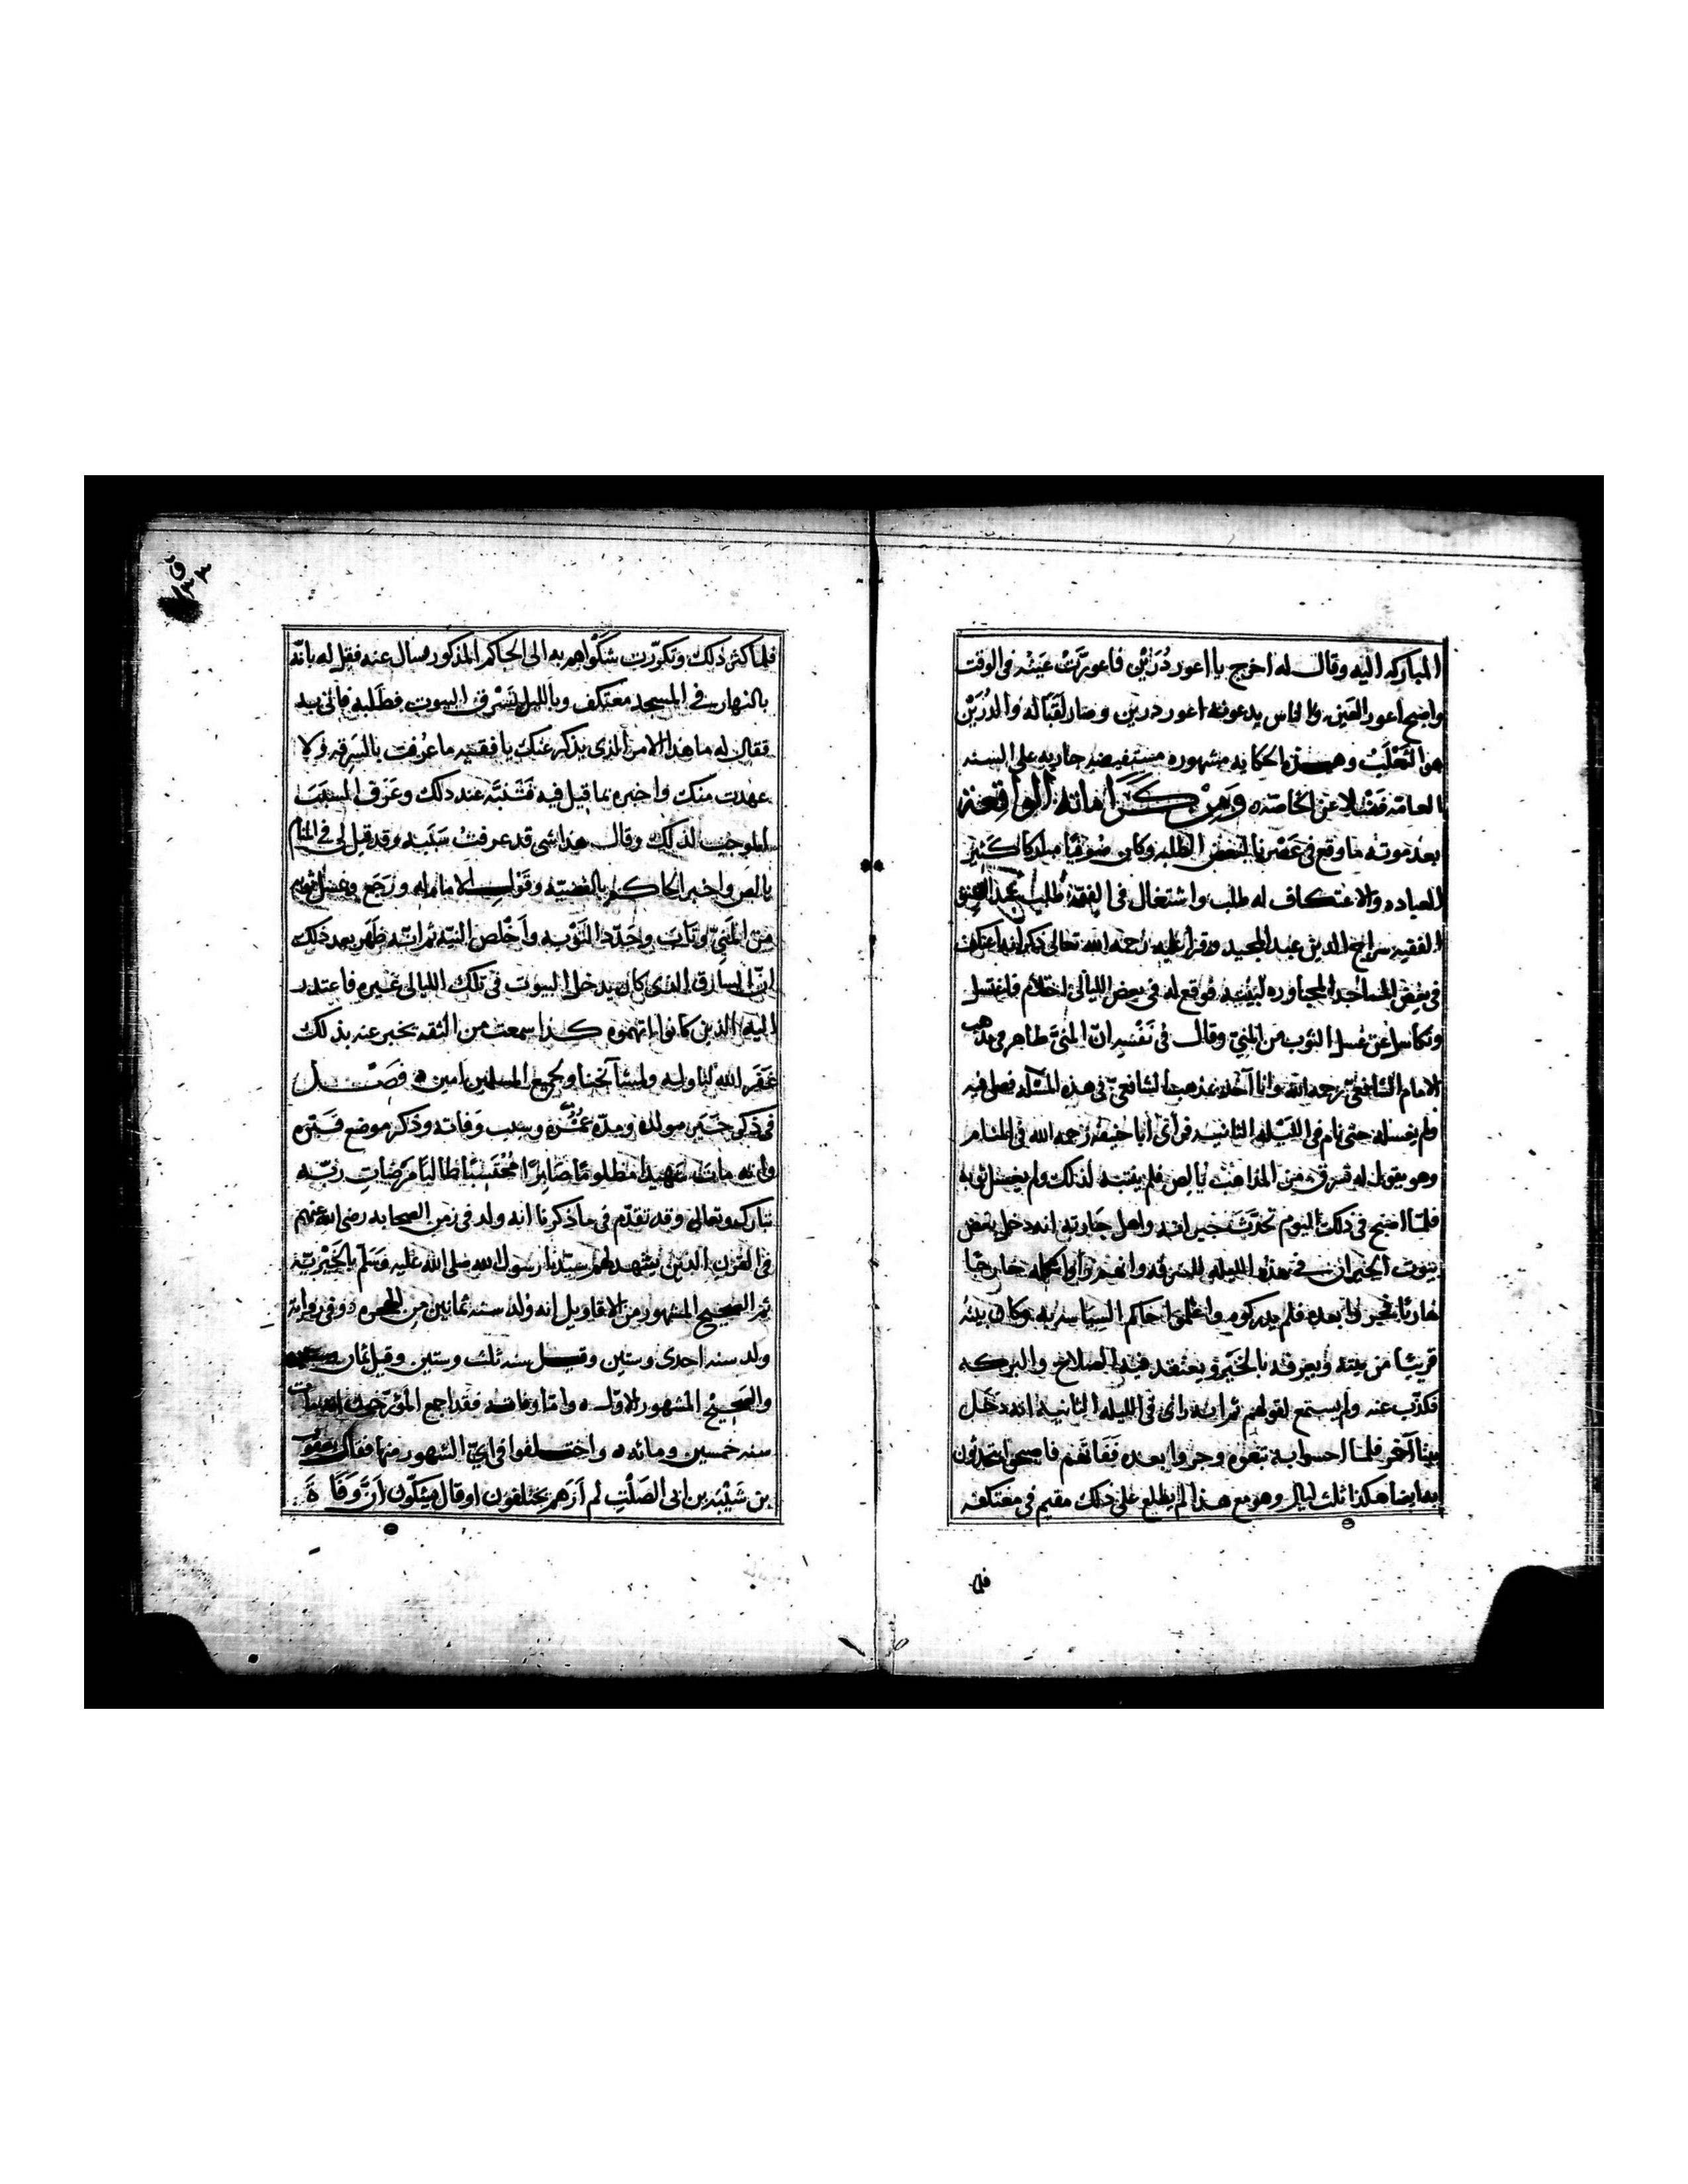 المباركه اليه وقال له اخرج يا اعور دُرَيْن فاعورّت عَيْنه فى الوقت
واصبح اعور العين والناس يدعونه اعور درين وصار لقبًا له والدُرَيْن
هو الثعلب وهذه الحكايه مشهوره مستفيضه جاريه على السنه
العامّه فضلا عن الخاصّه ومن كراماته الواقعة
بعد موته ما وقع فى عصرنا لبعض الطلبه وكان صوفيًا مباركا كثير
العباده والاعتكاف له طلب واشتغال فى الفقه طلب عند
الفقيه سراج الدين عبد المجيد وقرا عليه رحمه الله تعالى ذكر انه اعتكف
فى بعض المساجد المجاوره لبيته فوقع له فى بعض الليالى احتلام فاغتسل
وتكاسل عن غسل الثوب من المنيّ وقال فى نفسه انّ المنيّ طاهر فى مذهب
الامام الشافعيّ رحمه الله وانا آخذ بمذهب الشافعيّ فى هذه المسئله فصلى فيه
ولم يغسله حتى نام فى الليله الثانيه فرأى أبا حنيفه رحمه الله فى المنام
وهو يقول له تسرق من المذاهب يا لص فلم ينتبه لذلك ولم يغسل ثوبه
فلمّا اصبح فى ذلك اليوم تحدّث جيرانه واهل حارته انه دخل بعض
بيوت الجيران فى هذه الليله للسرقه وانهم راوا خارجًا
هاربًا فجروا بعده فلم يدركوه واعلموا حاكم السياسه به وكان بيته
قريبًا من بيته ويعرفه بالخير ويعتقد فيه الصلاح والبركه
فكذّب عنه ولم يستمع لقولهم ثم انه رأى فى الليله الثانيه انه دخل
بيتا آخر فلمّا احسوا به تبعوه وجروا بعده ففاتهم فاصبحوا يتحدثون
به ايضا هكذا ثلث ليال وهو مع هذا لم يطلع على ذلك مقيم فى معتكفه
فلما
فلما كثر ذلك وتكرّرت شكواهم به الى الحاكم المذكور سال عنه فقيل له بانّه
بالنهار فى المسجد معتكف وبالليل يَسْرق البيوت فطلبه فاتى به
فقال له ما هذا الامر الذى يذكر عنك يا فقيه ما عرفت بالسرقه ولا
عهدت منك واخبره بما قيل فيه فتنبّه عند ذلك وعرف السبب
الموجب لذلك وقال هذا شى قد عرفت سببه وقد قيل لى فى المنام
يا لص واخبر الحاكم بالقضيّه وقول الامام له ورجع وغسل ثوبه
من المنيّ وتاب وجدّد التوبه وأخلص النيّه ثم انّه ظهر بعد ذلك
انّ السارق الذى كان يدخل البيوت فى تلك الليالى غيره فاعتذر
اليه الذين كانوا اتهموه كذا سمعت من الثقه يخبر عنه بذلك
غفر الله لنا وله ولمشائخنا ولجميع المسلمين امين فصل
فى ذكر خبر مولده ومدّة عمُره وسبب وفاته وذكر موضع قبره
وانه مات شهيدا مظلومًا صابرًا مُحتسبًا طالبًا مرضات ربّه
تبارك وتعالى وقد تقدّم فى ما ذكرنا انه ولد فى زمن الصحابه رضى الله عنهم
فى القرن الذين يشهد لهم سيّدنا رسول الله صلى الله عليه وسلّم بالخيْريّه
ثم الصحيح المشهور من الاقاويل انه ولد سنه ثمانين من الهجره وفى روايه
ولد سنه احدى وستين وقيل سنه ثلث وستين وقيل ثمان
والصحيح المشهور الاوّل واما وفاته فقد اجمع المؤرّخون انه مات
سنه خمسين ومائه واختلفوا فى ايّ الشهور منها فقال يعقوب
بن شَيْبَه بن ابى الصَلْت لم أرَهم يختلفون او قال يشكّون أنّ وَفَاةَ